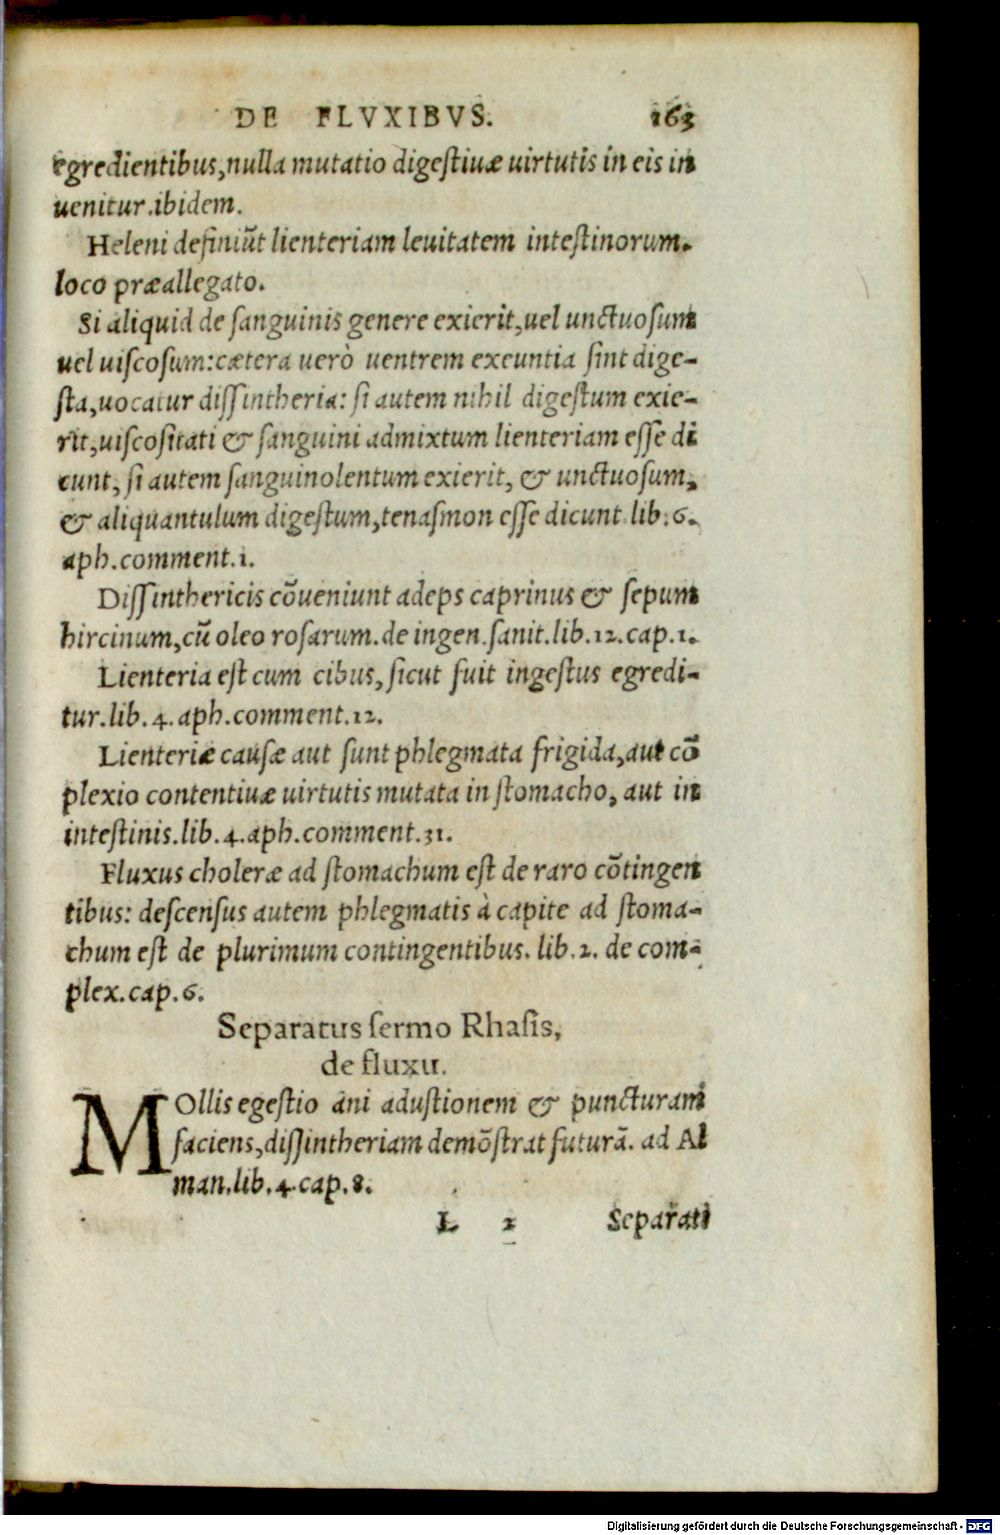 DE FLVXIBVS. 163
egredientibus,nulla mutatio digestiuæ uirtutis in eis in
uenitur.ibidem.
Heleni definiũt lienteriam leuitatem intestinorum.
loco præallegato.
Si aliquid de sanguinis genere exierit,uel unctuosum
uel uiscosum:cætera uerò uentrem exeuntia sint dige-
sta,uocatur dissintheria: si autem nihil digestum exie-
rit,uiscositati & sanguini admixtum lienteriam esse di
cunt, si autem sanguinolentum exierit, & unctuosum,
& aliquantulum digestum,tenasmon esse dicunt.lib.6.
aph.comment.1.
Dissinthericis cõueniunt adeps caprinus & sepum
hircinum,cũ oleo rosarum.de ingen.sanit.lib.12.cap.1.
Lienteria est cum cibus, sicut fuit ingestus egredi-
tur.lib.4.aph.comment.12.
Lienteriæ causæ aut sunt phlegmata frigida,aut cõ
plexio contentiuæ uirtutis mutata in stomacho, aut in
intestinis.lib.4.aph.comment.31.
Fluxus choleræ ad stomachum est de raro cõtingen
tibus: descensus autem phlegmatis à capite ad stoma-
chum est de plurimum contingentibus. lib.2. de com-
plex.cap.6.
Separatus sermo Rhasis,
de fluxu.
MOllis egestio ani adustionem & puncturam
faciens,dissintheriam demõstrat futurã. ad Al
man.lib.4.cap.8.
L 2 Separati
Digitalisierung gefördert durch die Deutsche Forschungsgemeinschaft - DFG